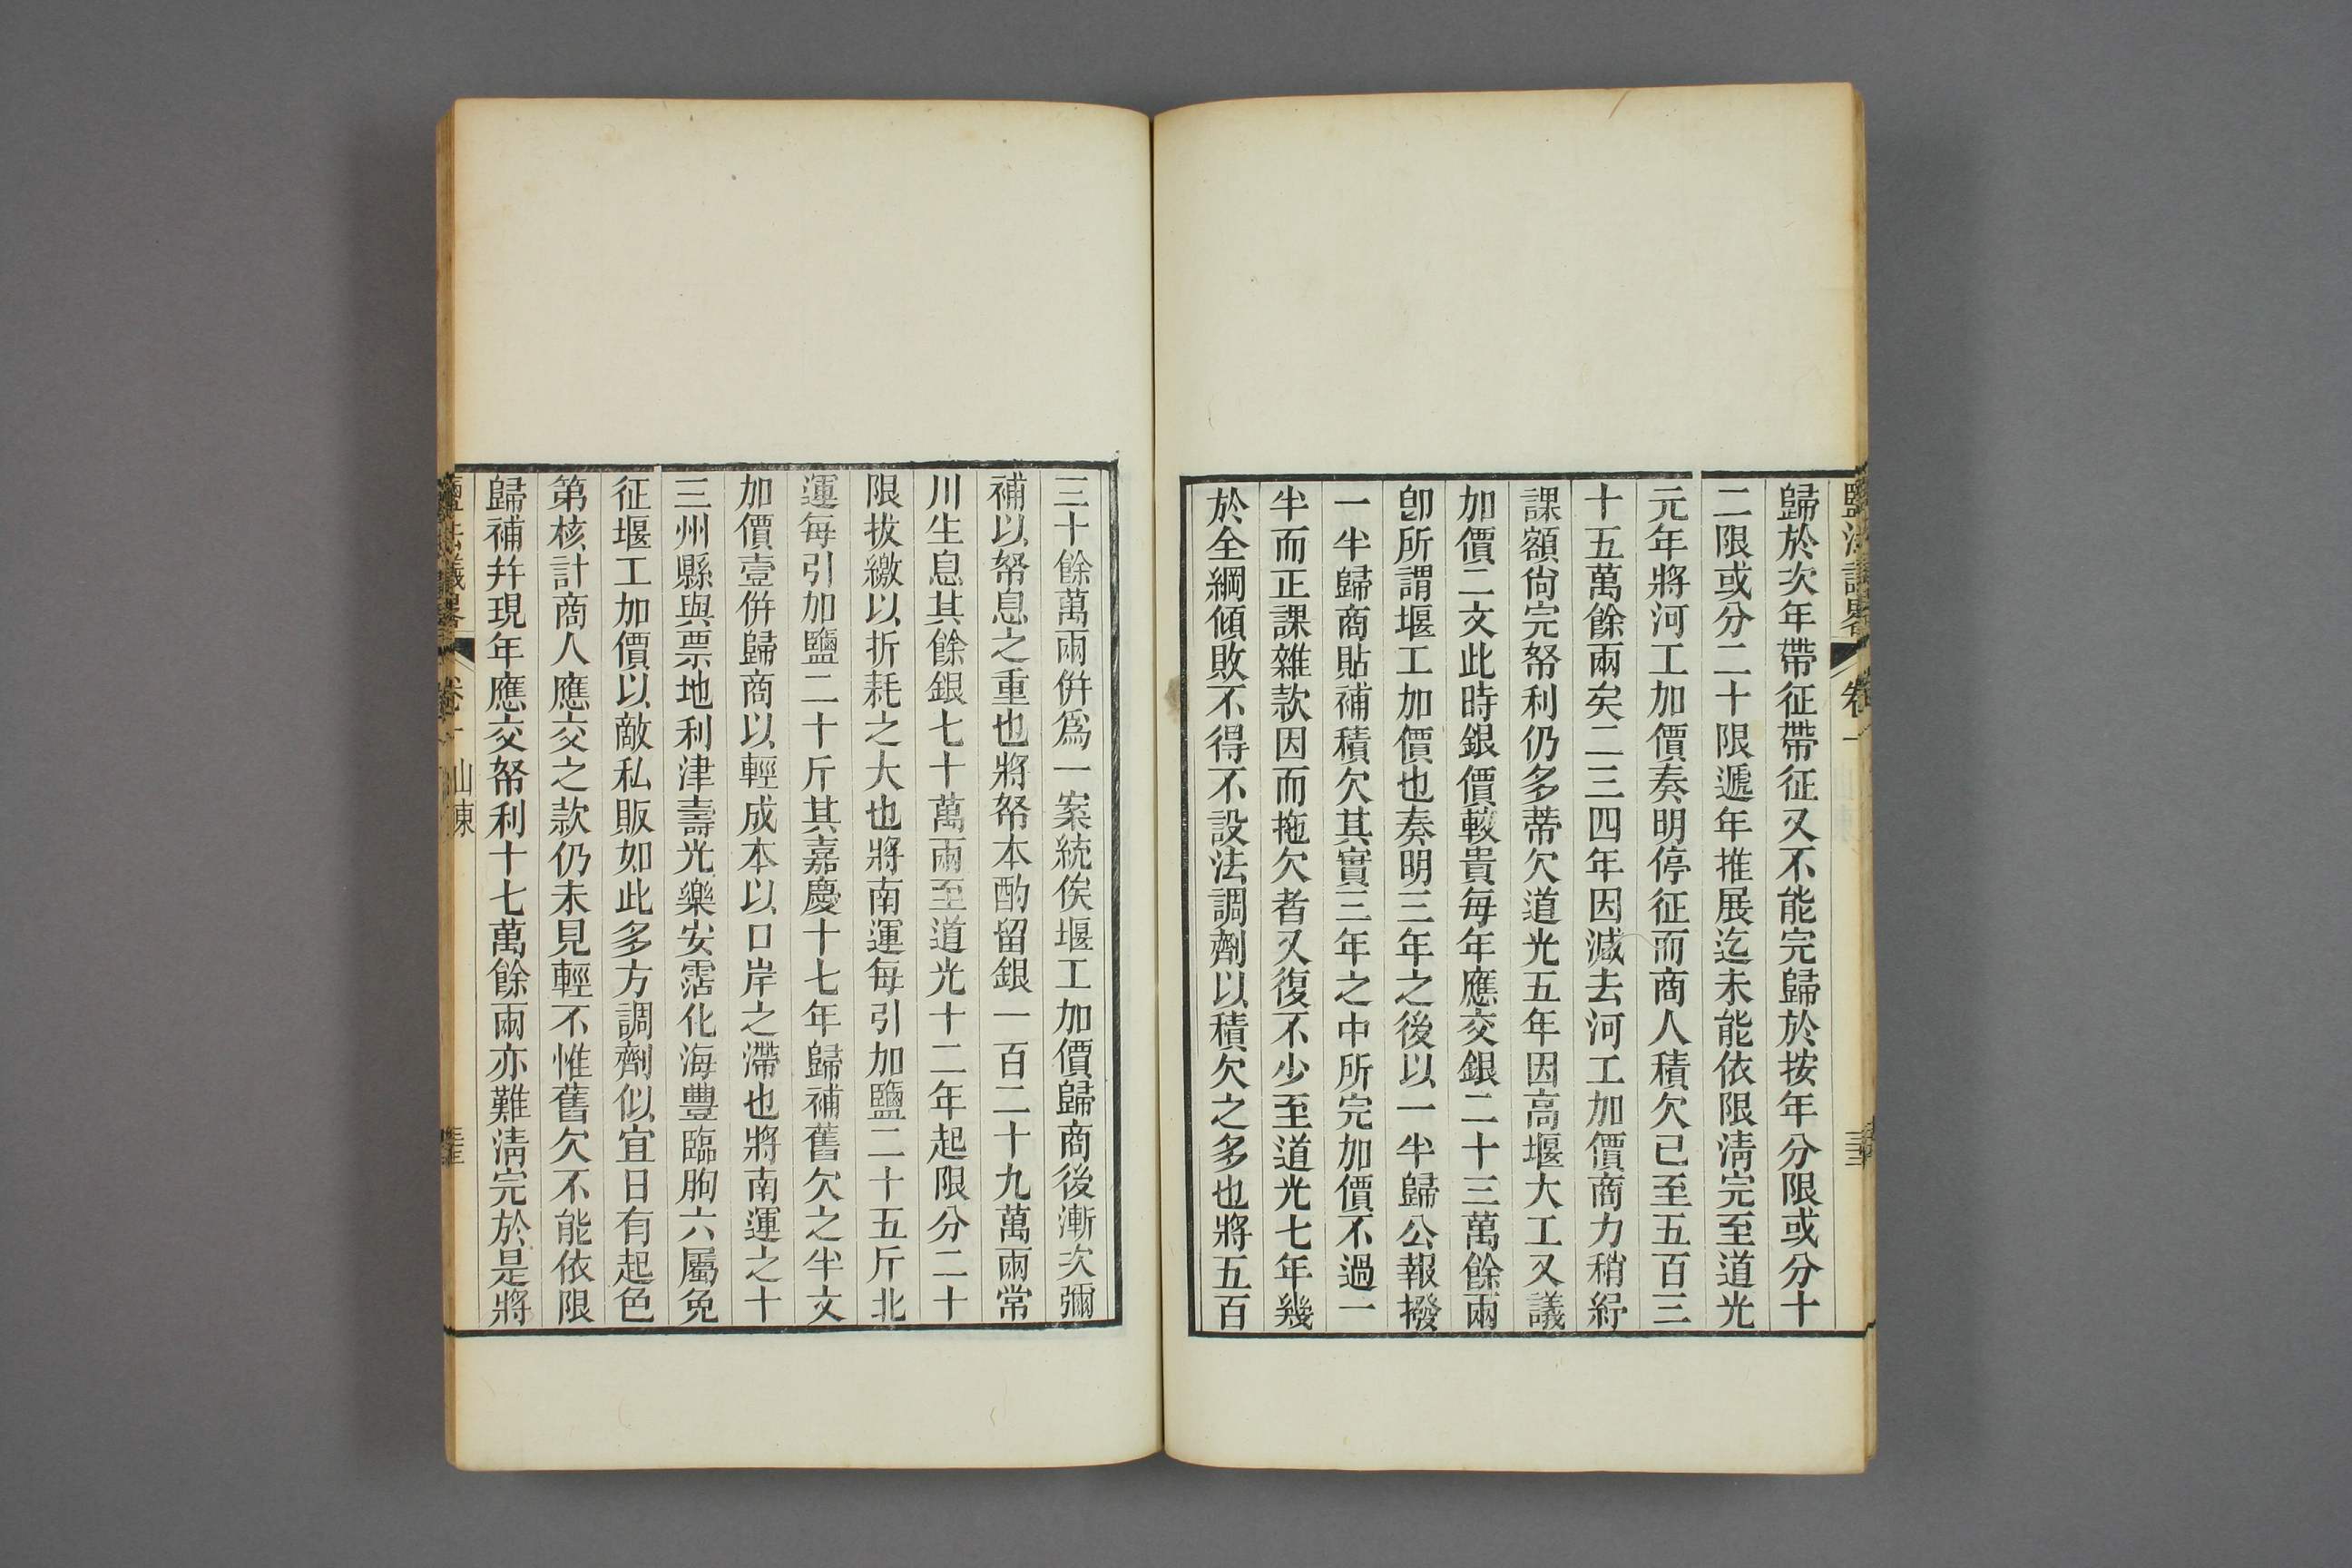 鹽法議畧 卷一
歸於次年帶征帶征又不能完歸於按年分限或分十
二限或分二十限遞年推展迄未能依限淸完至道光
元年將河工加價奏明停征而商人積欠已至五百三
十五萬餘兩矣二三四年因減去河工加價商力稍紓
課額尙完帑利仍多蒂欠道光五年因高堰大工又議
加價二文此時銀價較貴每年應交銀二十三萬餘兩
卽所謂堰工加價也奏明三年之後以一半歸公報撥
一半歸商貼補積欠其實三年之中所完加價不過一
半而正課雜款因而拖欠者又復不少至道光七年幾
於全綱傾敗不得不設法調劑以積欠之多也將五百
三十餘萬兩倂爲一案統俟堰工加價歸商後漸次彌
補以帑息之重也將帑本酌留銀一百二十九萬兩常
川生息其餘銀七十萬兩至道光十二年起限分二十
限拔繳以折耗之大也將南運每引加鹽二十五斤北
運每引加鹽二十斤其嘉慶十七年歸補舊欠之半文
加價壹倂歸商以輕成本以口岸之滯也將南運之十
三州縣與票地利津壽光樂安霑化海豐臨朐六屬免
征堰工加價以敵私販如此多方調劑似宜日有起色
第核計商人應交之款仍未見輕不惟舊欠不能依限
歸補幷現年應交帑利十七萬餘兩亦難淸完於是將
鹽法議畧 卷一 山東